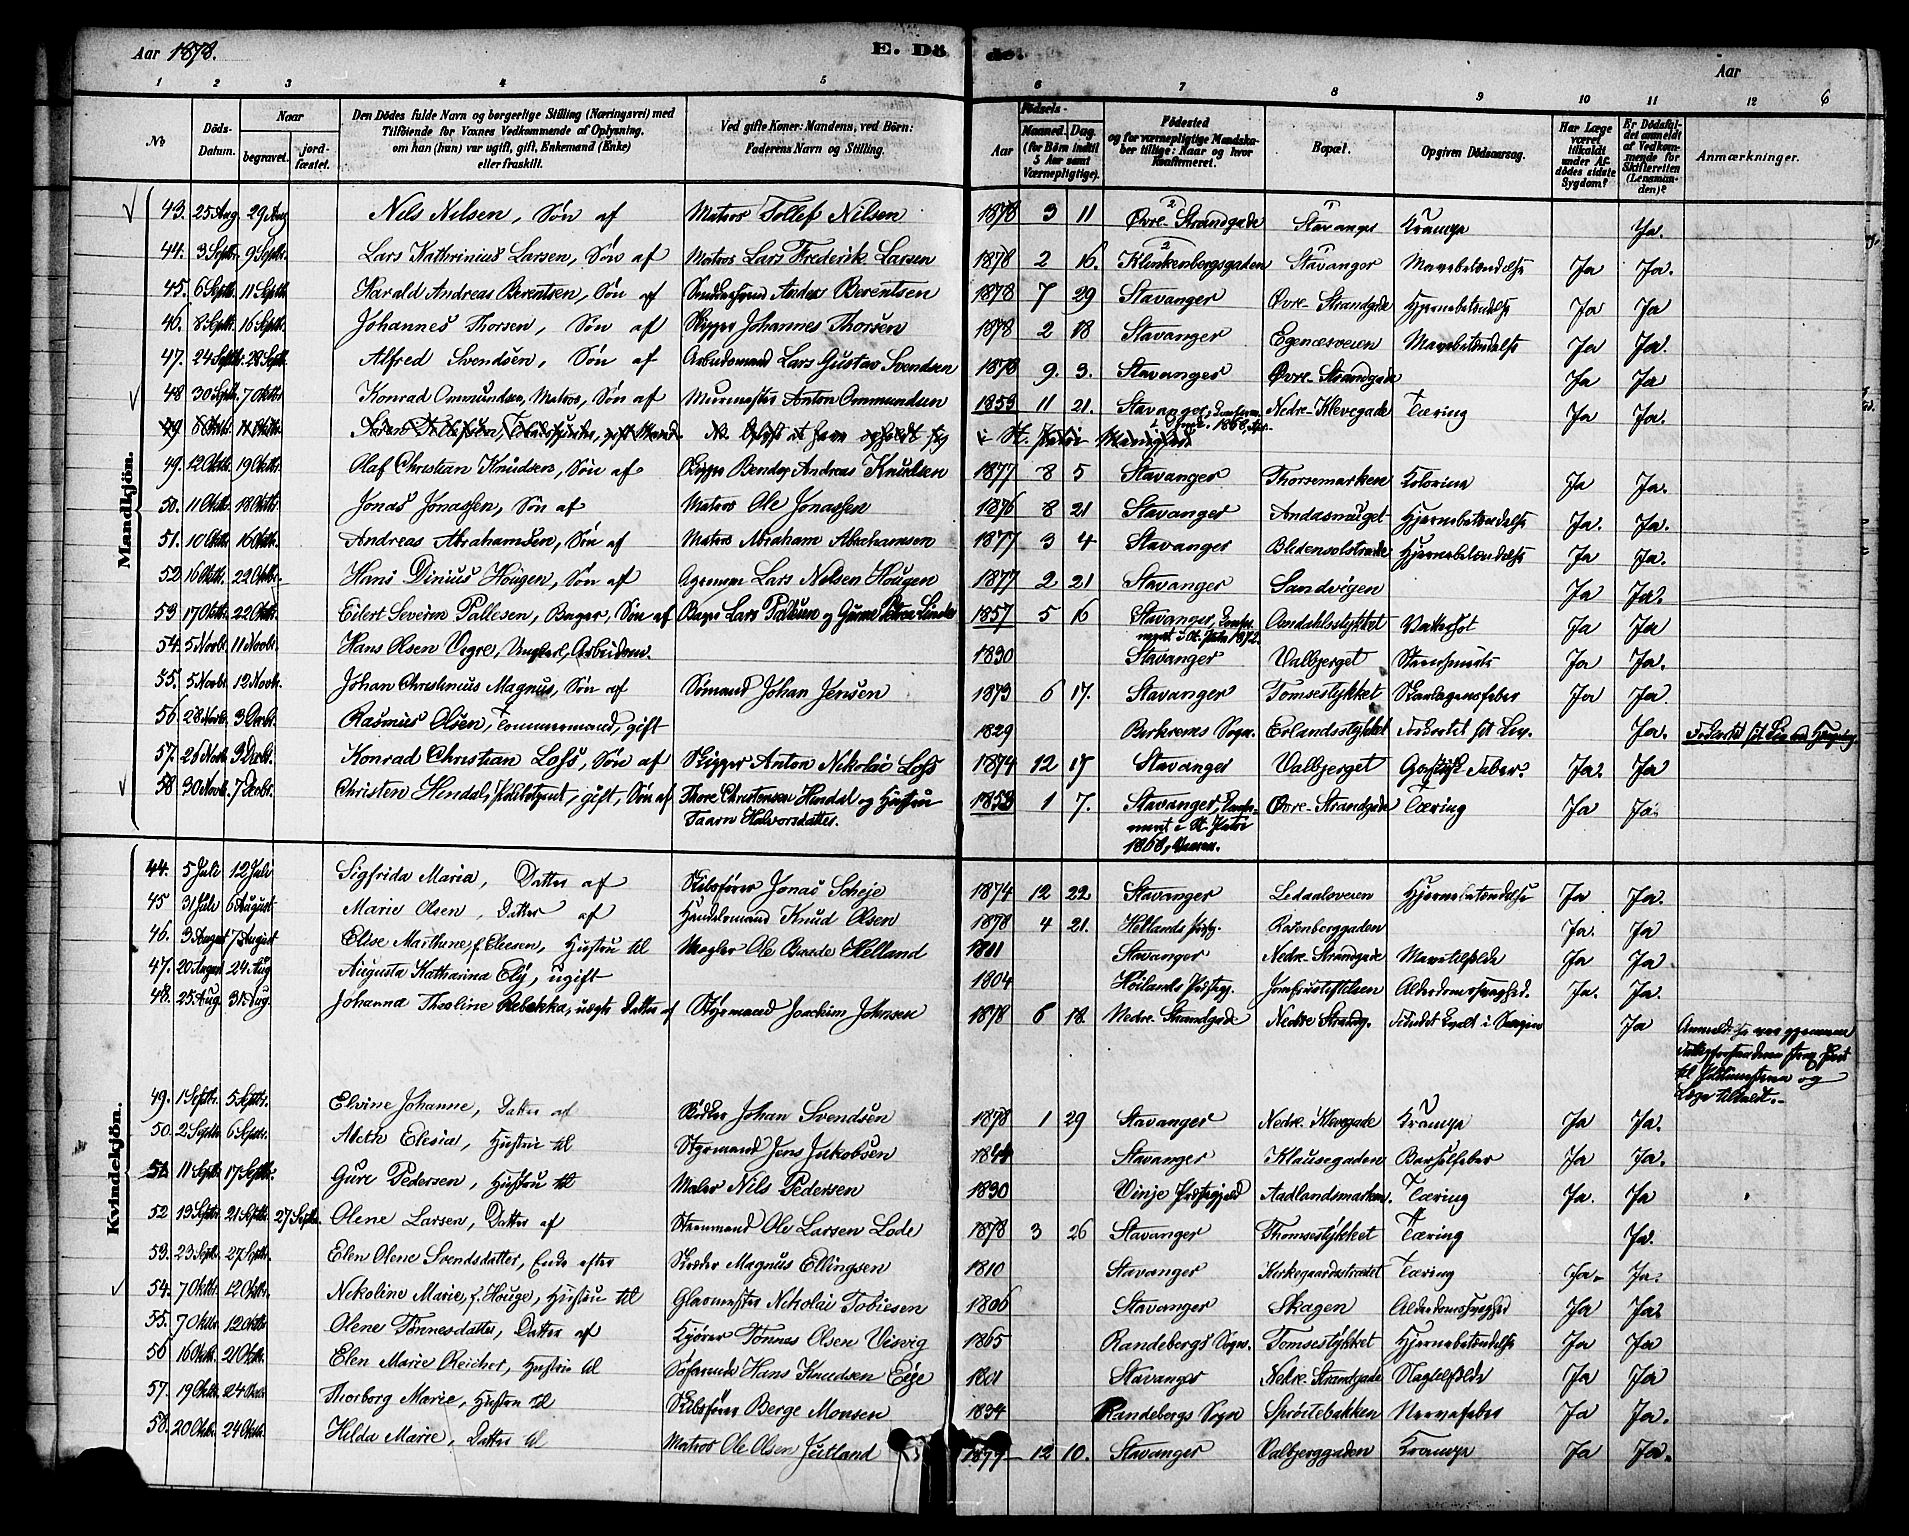 Aar 1878. E. Döde. Aar
1 2 3 4 5 6 7 8 9 10 11 12 6
No Döds-Datum. Naar begravet. jordfæstet. Den Dödes fulde Navn og borgerlige Stilling (Næringsvei) med Tilföiende for Voxnes Vedkommende af Oplysning, om han (hun) var ugift, gift, Enkemand (Enke) eller fraskilt. Ved gifte Koner: Mandens, ved Börn: Faderens Navn og Stilling. Födsels- Aar Maaned. Dag. (for Börn indtil 5 Aar samt Værnepligtige). Födested og for værnepligtige Mandskaber tillige: Naar og hvor konfirmeret. Bopæl. Opgiven Dödsaarsag. Har Læge været tilkaldt under Afdödes sidste Sygdom? Er Dödsfaldet anmeldt af Vedkommende for Skifteretten (Lensmanden)? Anmærkninger.
Mandkjön.
43. 25 Aug. 29 Aug Nels Nelsen, Søn af Matros Tollef Nilsen 1878 3 11 Øvre-Strandgade Stavanger Krampe Ja.
44. 3 Septb. 9 Septb. Lars Kathrinius Larsen, Søn af Matros Lars Frederik Larsen 1878 2 16. Klinkenbergsgaden Stavanger Mavebetændelse Ja Ja.
45. 6 Septb. 11 Septb. Harald Andreas Berentsen, Søn af Berentsen 1878 7 29 Stavanger Øvre-Strandgade Hjernebetændelse Ja Ja
46. 8 Septb. 16 Septb. Johannes Thorsen, Søn af Skipper Johannes Thorsen 1878 2 18 Stavanger Egenæsveien Mavebetændelse Ja Ja.
47. 24 Septb. 28 Septb. Alfred Svendsen, Søn af Arbeidsmand Lars Gustav Svendsen 1878 9. 3. Stavanger Øvre-Strandgade Ja Ja
48 30 Septb. 7 Oktbr. Konrad Ommundsen, Matros, Søn af Murmester Anton Ommundsen 1853 11 21. Stavanger, Nedre-Klevegade Tæring Ja Ja.
49 i St. Petri Menighed
49. 12 Oktbr. 19 Oktbr. Olaf Christian Knudsen, Søn af Skipper Andreas Knudsen 1877 8 5 Stavanger Thorsemarken Kolerine Ja Ja.
50. 11 Oktbr. 18 Oktbr. Jonas Jonassen, Søn af Matros Ole Jonassen 1876 8 21 Stavanger Andasmuget Hjernebetændelse Ja. Ja.
51. 10 Oktbr. 16 Oktbr. Andreas Abrahamsen, Søn af Matros Abraham Abrahamsen 1877 3 4 Stavanger Blidensolstræde Hjernebetændelse Ja Ja.
52 16 Oktbr. 22 Oktbr. Hans Dinius Hougen, Søn af Lars Nelsen Hougen 1877 2 21 Stavanger Sandvigen Ja Ja.
53 17 Oktbr. 22 Oktbr. Eilert Severin Pallesen, Bager, Søn af Bager Lars Pallesen og 1857 5 16 Stavanger, St. Petri 1872. Vatersot Ja Ja
54. 5 Novbr. 11 Novbr. Hans Olsen Vegre, Ungkarl, Arbeidsm. 1830 Stavanger Valbjerget Ja Ja.
55. 5 Novbr. 12 Novbr. Johan Christinius Magnus, Søn af Sømand Johan Jensen 1873 6 17. Stavanger Tomsestykket Skarlagensfeber Ja Ja
56. 28 Novb. 3 Decbr. Rasmus Olsen, Tømmermand, gift 1829 Birkrems Sogn. Erlandsstykket Ja.
57. 26 Novb. 3 Decbr. Konrad Christian Lofs, Søn af Skipper Anton Nikolai Lofs 1874 12 17 Stavanger Valbjerget Gastrisk Feber. Ja. Ja
58 30 Novb. 7 Decbr. Christen Hendal, gift, Søn af Thore Christensen Hendal og Hustru Taarn Halvorsdatter. 1858 1 7. Stavanger, i St. Petri 1868 Øvre-Strandgade Tæring Ja Ja.
Kvindekjön.
44. 5 Juli 12 Juli Sigfrida Maria, Datter af Skibsfører Jonas Scheje 1874 12 22. Stavanger Ledaalsveien Hjernebetændelse Ja Ja.
45 31 Juli 6 August Marie Olsen, Datter af Handelsmand Knud Olsen 1878 4 21. Hetlands Rosenberggaden Ja. Ja
46. 3 August 7 August Elise Marthine f. Elsesen, Hustru til Mægler Ole Helland 1801 Stavanger Nedre-Strandgade Mavetilfælde Ja Ja
47. 20 August 24 Aug Augusta Katharina Ely, ugift 1804 Høilands Jomfrustiftelsen Alderdomssvaghed. Ja. Ja.
48. 25 Aug. 31 Aug. Johanna Theoline Rebekka, uægte Datter af Styrmand Joachim Johnsen 1878 6 18. Nedre. Strandgade Nedre Strandg. Ja
49. 1 Septbr. 5 Septbr. Elvine Johanne, Datter af Johan Svendsen 1878 1 29 Stavanger Nedre. Klevegade Krampe Ja Ja.
50. 2 Septb 6 Septb. Meth Elesia, Hustru til Styrmand Jens Jakobsen 1844 Stavanger Klausegaden Barselfeber Ja Ja.
51 11 Septb 17 Septbr. Gure Pedersen, Hustru til Maler Nils Pedersen 1830 Vinje Præstegjeld Aadlandsmarken. Tæring Ja. Ja
52 19 Septb 21 Septb. 27 Septb. Olene Larsen, Datter af Steenmand Ole Larsen Lode 1878 3 26 Stavanger Thomsestykket Tæring Ja.
53. 23 Septb. 27 Septb. Elen Olene Svendsdatter, Enke efter Skræder Magnus Ellingsen 1810 Stavanger Kirkegaardsstrædet Tæring Ja. Ja.
54. 7 Oktbr. 12 Oktbr. Nekoline Marie, f. Houge, Hustru til Glasmester Nikolai Tobiesen 1806 Stavanger Skagen Alderdomssvaghed Ja Ja.
55. 7 Oktbr. 12 Oktbr Olene Tønnesdatter, Datter af Kjører Tønnes Olsen Visvig 1865 Randebergs Sogn. Tomsestykket Hjernebetændelse Ja Ja
56 16 Oktbr. 21 Oktbr. Elen Marie Reichet, Hustru til Søfarende Hans Knudsen Eige 1801 Stavanger Nedre-Strandgade Slagtilfælde Ja Ja
57. 19 Oktbr. 24 Oktbr Thorborg Marie, Hustru til Skibsfører Berge Monsen 1834 Randebergs Sogn Sprøitebakken Nervefeber Ja Ja.
58. 20 Oktbr. 24 Oktbr. Hilda Marie, Datter til Matros Ole Olsen Jutland 1877 12 10. Stavanger Valbjerggaden Krampe Ja Ja.